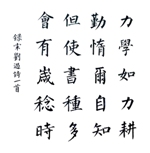 力學如力耕
勤惰爾自知
但使書種多
會有歲稔時
錄宋劉過詩一首